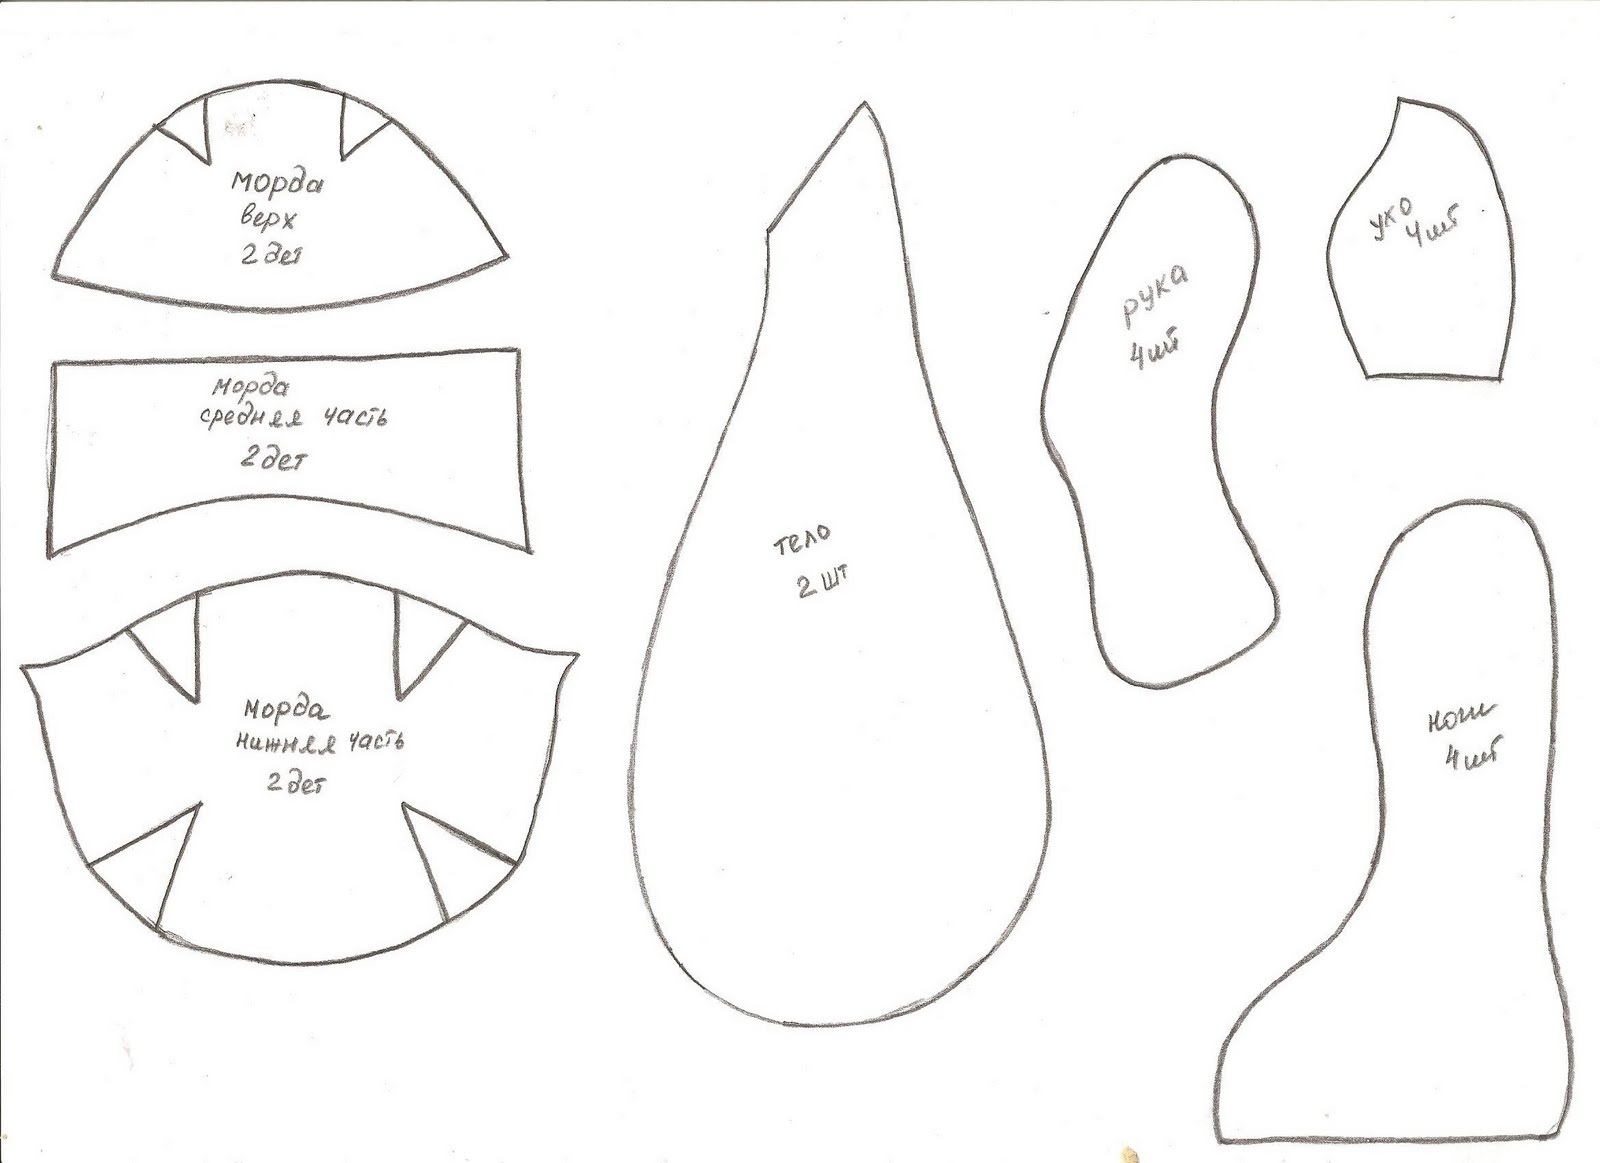 морда
верх
2 дет
морда
средняя часть
2 дет
морда
нижняя часть
2 дет
тело
2 шт
рука
4 шт
ухо
4 шт
ноги
4 шт